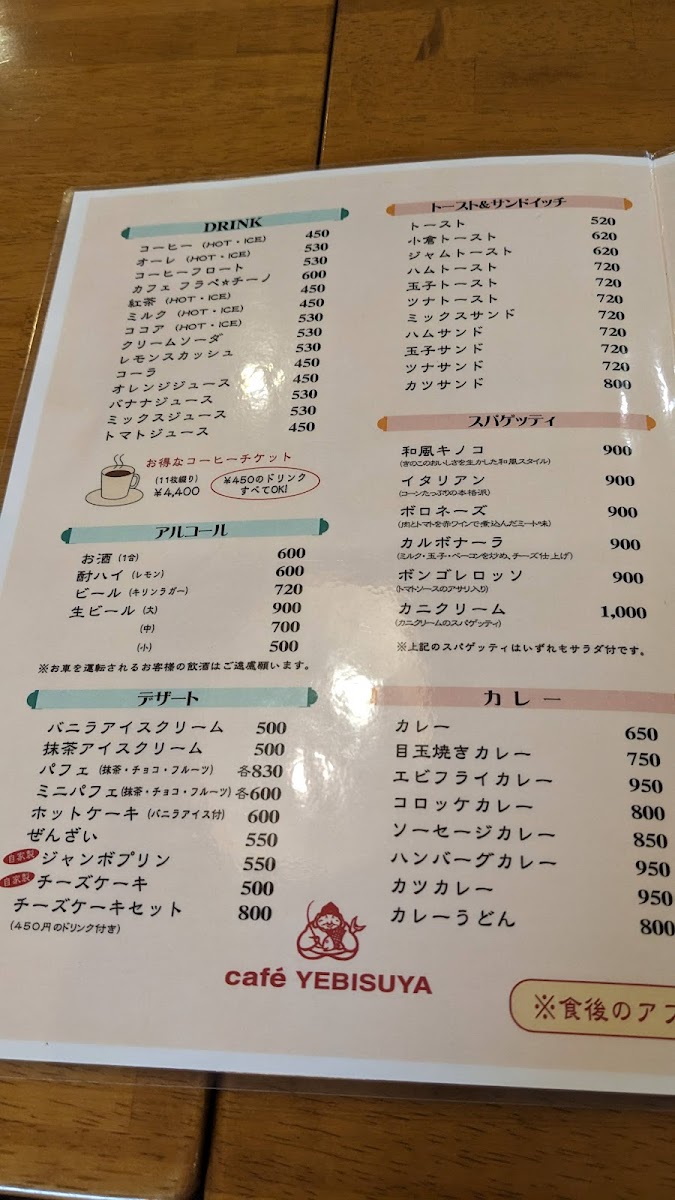 DRINK
コーヒー (HOT・ICE) 450
オーレ (HOT・ICE) 530
コーヒーフロート 530
カフェ フラペ★チーノ 600
紅茶 (HOT・ICE) 450
ミルク (HOT・ICE) 450
ココア (HOT・ICE) 530
クリームソーダ 530
レモンスカッシュ 530
コーラ 450
オレンジジュース 450
バナナジュース 530
ミックスジュース 530
トマトジュース 450
お得なコーヒーチケット
(11枚綴り)
¥4,400
¥450のドリンク
すべてOK!
アルコール
お酒 (1合) 600
酎ハイ (レモン) 600
ビール (キリンラガー) 720
生ビール (大) 900
(中) 700
(小) 500
※お車を運転されるお客様の飲酒はご遠慮願います。
デザート
バニラアイスクリーム 500
抹茶アイスクリーム 500
パフェ (抹茶・チョコ・フルーツ) 各830
ミニパフェ (抹茶・チョコ・フルーツ) 各600
ホットケーキ (バニラアイス付) 600
ぜんざい 550
自家製 ジャンボプリン 550
自家製 チーズケーキ 500
チーズケーキセット 800
(450円のドリンク付き)
トースト&サンドイッチ
トースト 520
小倉トースト 620
ジャムトースト 620
ハムトースト 720
玉子トースト 720
ツナトースト 720
ミックスサンド 720
ハムサンド 720
玉子サンド 720
ツナサンド 720
カツサンド 800
スパゲッティ
和風キノコ 900
(きのこのおいしさを生かした和風スタイル)
イタリアン 900
(コーンたっぷりの本格派)
ボロネーズ 900
(肉とトマトを赤ワインで煮込んだミート味)
カルボナーラ 900
(ミルク・玉子・ベーコンを炒め、チーズ仕上げ)
ボンゴレロッソ 900
(トマトソースのアサリ入り)
カニクリーム 1,000
(カニクリームのスパゲッティ)
※上記のスパゲッティはいずれもサラダ付です。
カレー
カレー 650
目玉焼きカレー 750
エビフライカレー 950
コロッケカレー 800
ソーセージカレー 850
ハンバーグカレー 950
カツカレー 950
カレーうどん 800
café YEBISUYA
※食後のアフ